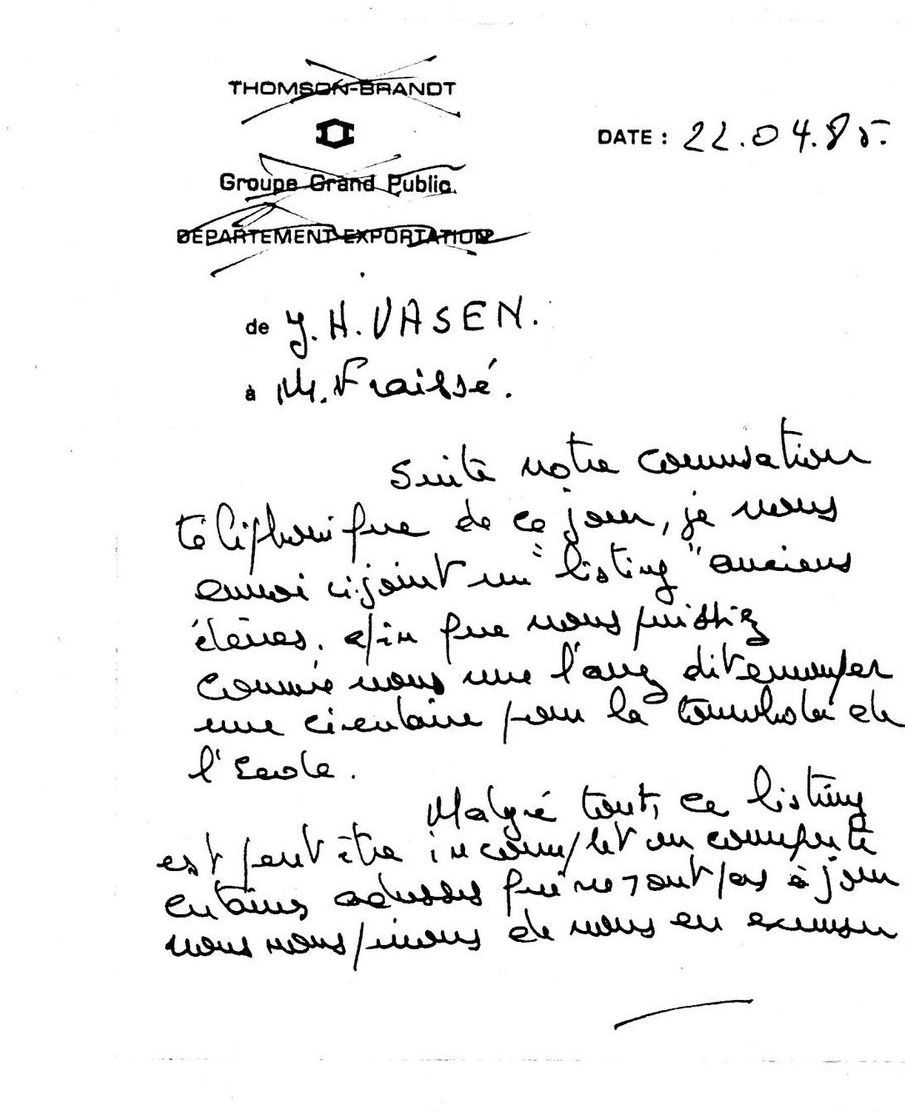 THOMSON-BRANDT
DATE : 22.04.85.
Groupe Grand Public.
DEPARTEMENT EXPORTATION
de J.H.VASEN.
à M. Fraissé.
Suite notre conversation
téléphonique de ce jour, je vous
envoi ci-joint un "listing" anciens
élèves. afin que vous puissiez
comme vous une l'avez dit envoyer
une circulaire pour la tombola de
l'Ecole.
Malgré tout, ce listing
est peut être incomplet ou comporte
certaines adresses qui ne sont pas à jour
nous vous prions de nous en excuser